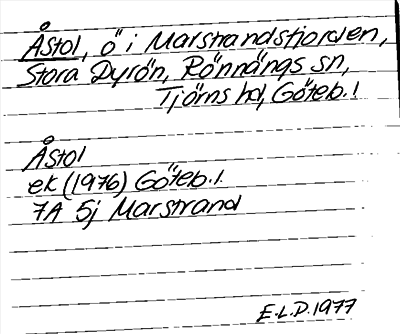 Åstol, ö i Marstrandsfjorden,
Stora Dyrön, Rönnängs sn,
Tjörns hd, Göteb. l.
Åstol
ek (1976) Göteb. l.
7A 5j Marstrand
E.L.D. 1977